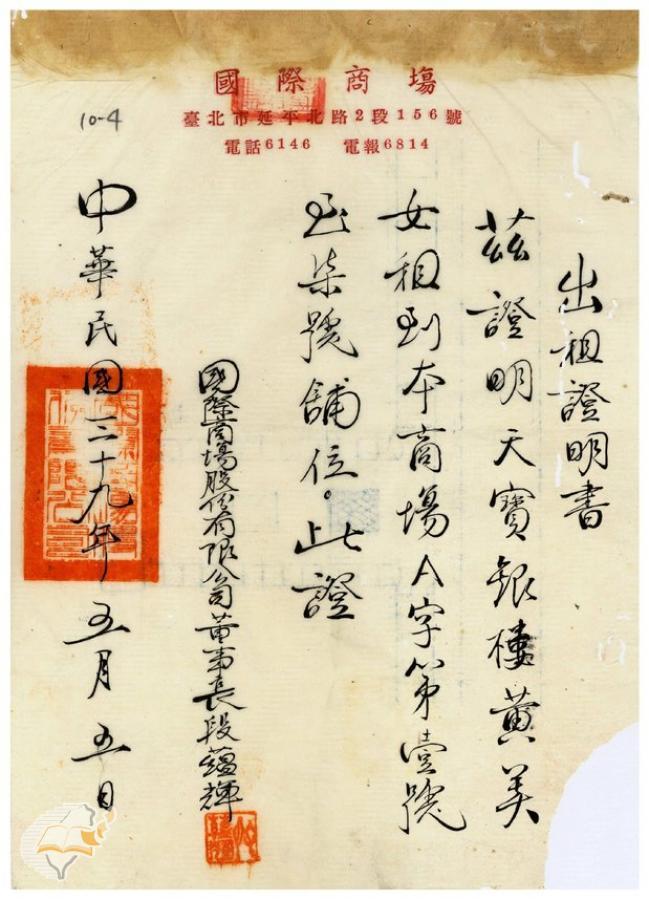 國際商場
臺北市延平北路2段156號
電話6146 電報6814
10-4
出租證明書
茲證明天寶銀樓黃美
女租到本商場A字第壹號
至柒號舖位。此證
國際商場股份有限公司董事長段蘊輝
中華民國三十九年五月五日